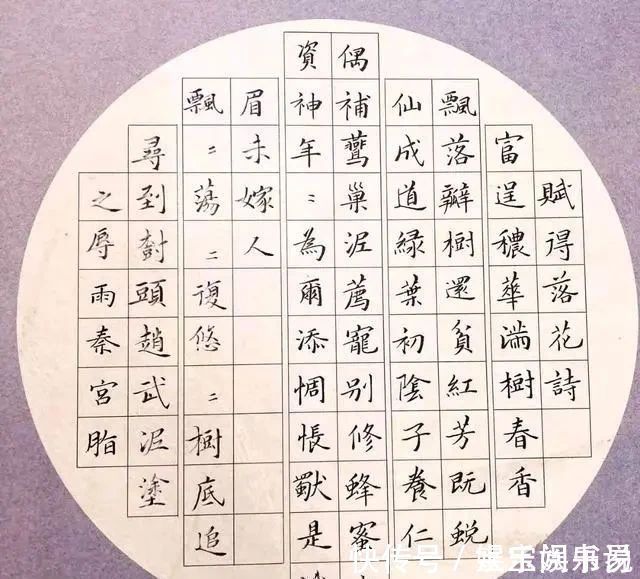 賦得落花詩
富逞穠華滿樹春香
飄落瓣樹還貧紅芳既蛻
仙成道綠葉初陰子養仁
偶補鶯巢泥薦寵別修蜂蜜
資神年〻為爾添惆悵是
眉未嫁人
飄〻蕩〻復悠〻樹底追
尋到樹頭趙武泥塗
之辱雨秦宮脂
快传号 /